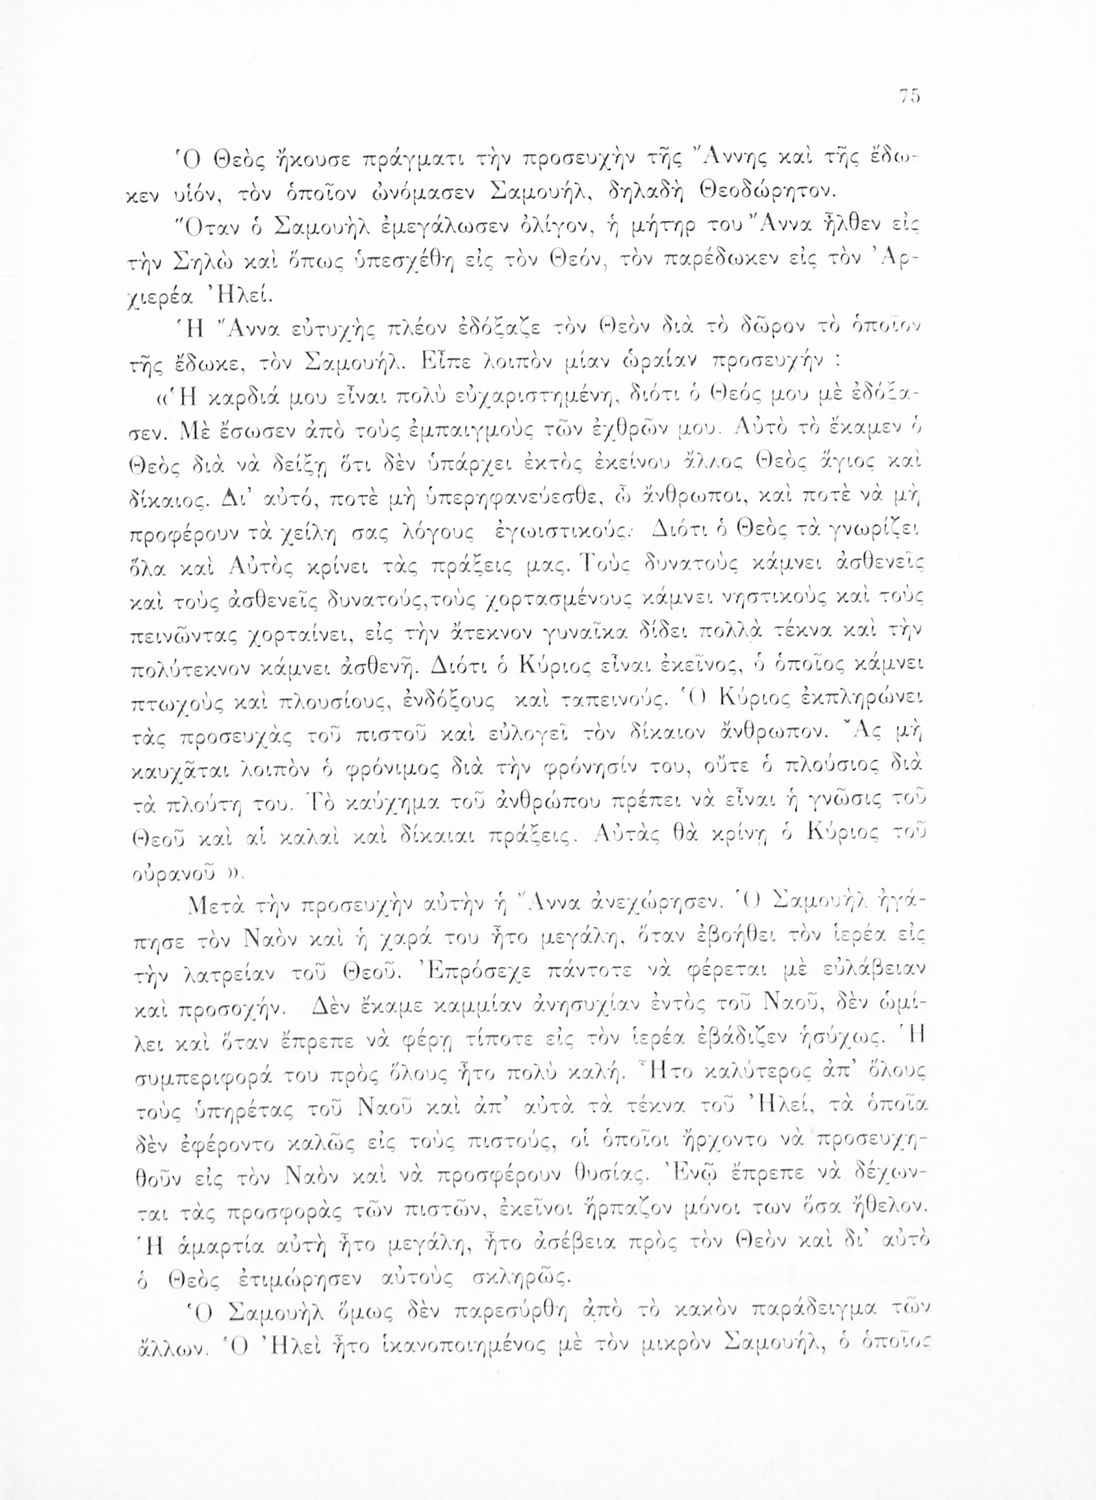 75
Ὁ Θεὸς ἤκουσε πράγματι τὴν προσευχὴν τῆς Ἄννης καὶ τῆς ἔδω-
κεν υἱόν, τὸν ὁποῖον ὠνόμασεν Σαμουήλ, δηλαδὴ Θεοδώρητον.
Ὅταν ὁ Σαμουὴλ ἐμεγάλωσεν ὀλίγον, ἡ μήτηρ του Ἄννα ἦλθεν εἰς
τὴν Σηλὼ καὶ ὅπως ὑπεσχέθη εἰς τὸν Θεόν, τὸν παρέδωκεν εἰς τὸν Ἀρ-
χιερέα Ἠλεί.
Ἡ Ἄννα εὐτυχὴς πλέον ἐδόξαζε τὸν Θεὸν διὰ τὸ δῶρον τὸ ὁποῖον
τῆς ἔδωκε, τὸν Σαμουήλ. Εἶπε λοιπὸν μίαν ὡραίαν προσευχήν :
«Ἡ καρδιά μου εἶναι πολὺ εὐχαριστημένη, διότι ὁ Θεός μου μὲ ἐδόξα-
σεν. Μὲ ἔσωσεν ἀπὸ τοὺς ἐμπαιγμοὺς τῶν ἐχθρῶν μου. Αὐτὸ τὸ ἔκαμεν ὁ
Θεὸς διὰ νὰ δείξῃ ὅτι δὲν ὑπάρχει ἐκτὸς ἐκείνου ἄλλος Θεὸς ἅγιος καὶ
δίκαιος. Δι’ αὐτό, ποτὲ μὴ ὑπερηφανεύεσθε, ὦ ἄνθρωποι, καὶ ποτὲ νὰ μὴ
προφέρουν τὰ χείλη σας λόγους ἐγωιστικούς. Διότι ὁ Θεὸς τὰ γνωρίζει
ὅλα καὶ Αὐτὸς κρίνει τὰς πράξεις μας. Τοὺς δυνατοὺς κάμνει ἀσθενεῖς
καὶ τοὺς ἀσθενεῖς δυνατούς,τοὺς χορτασμένους κάμνει νηστικοὺς καὶ τοὺς
πεινῶντας χορταίνει, εἰς τὴν ἄτεκνον γυναῖκα δίδει πολλὰ τέκνα καὶ τὴν
πολύτεκνον κάμνει ἀσθενῆ. Διότι ὁ Κύριος εἶναι ἐκεῖνος, ὁ ὁποῖος κάμνει
πτωχοὺς καὶ πλουσίους, ἐνδόξους καὶ ταπεινούς. Ὁ Κύριος ἐκπληρώνει
τὰς προσευχὰς τοῦ πιστοῦ καὶ εὐλογεῖ τὸν δίκαιον ἄνθρωπον. Ἂς μὴ
καυχᾶται λοιπὸν ὁ φρόνιμος διὰ τὴν φρόνησίν του, οὔτε ὁ πλούσιος διὰ
τὰ πλούτη του. Τὸ καύχημα τοῦ ἀνθρώπου πρέπει νὰ εἶναι ἡ γνῶσις τοῦ
Θεοῦ καὶ αἱ καλαὶ καὶ δίκαιαι πράξεις. Αὐτὰς θὰ κρίνῃ ὁ Κύριος τοῦ
οὐρανοῦ ».
Μετὰ τὴν προσευχὴν αὐτὴν ἡ Ἄννα ἀνεχώρησεν. Ὁ Σαμουὴλ ἠγά-
πησε τὸν Ναὸν καὶ ἡ χαρά του ἦτο μεγάλη, ὅταν ἐβοήθει τὸν ἱερέα εἰς
τὴν λατρείαν τοῦ Θεοῦ. Ἐπρόσεχε πάντοτε νὰ φέρεται μὲ εὐλάβειαν
καὶ προσοχήν. Δὲν ἔκαμε καμμίαν ἀνησυχίαν ἐντὸς τοῦ Ναοῦ, δὲν ὡμί-
λει καὶ ὅταν ἔπρεπε νὰ φέρῃ τίποτε εἰς τὸν ἱερέα ἐβάδιζεν ἡσύχως. Ἡ
συμπεριφορά του πρὸς ὅλους ἦτο πολὺ καλή. Ἦτο καλύτερος ἀπ’ ὅλους
τοὺς ὑπηρέτας τοῦ Ναοῦ καὶ ἀπ’ αὐτὰ τὰ τέκνα τοῦ Ἠλεί, τὰ ὁποῖα
δὲν ἐφέροντο καλῶς εἰς τοὺς πιστούς, οἱ ὁποῖοι ἤρχοντο νὰ προσευχη-
θοῦν εἰς τὸν Ναὸν καὶ νὰ προσφέρουν θυσίας. Ἐνῷ ἔπρεπε νὰ δέχων-
ται τὰς προσφορὰς τῶν πιστῶν, ἐκεῖνοι ἥρπαζον μόνοι των ὅσα ἤθελον.
Ἡ ἁμαρτία αὐτὴ ἦτο μεγάλη, ἦτο ἀσέβεια πρὸς τὸν Θεὸν καὶ δι’ αὐτὸ
ὁ Θεὸς ἐτιμώρησεν αὐτοὺς σκληρῶς.
Ὁ Σαμουὴλ ὅμως δὲν παρεσύρθη ἀπὸ τὸ κακὸν παράδειγμα τῶν
ἄλλων. Ὁ Ἠλεὶ ἦτο ἱκανοποιημένος μὲ τὸν μικρὸν Σαμουήλ, ὁ ὁποῖος